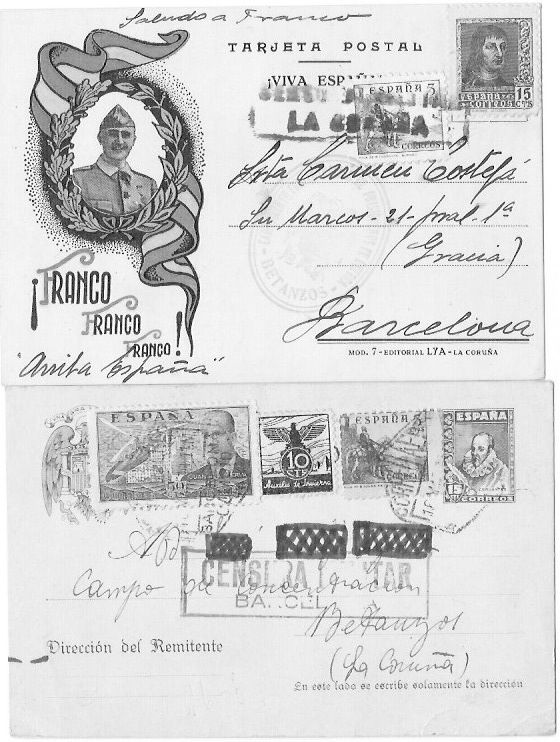 Saludo a Franco
TARJETA POSTAL
¡VIVA ESPAÑA!
ESPAÑA 5
CORREOS
ESPAÑA 15
CORREOS CTS
LA CORUÑA
Srta Carmen
Marcos-21-pral-1ª
(Gracia)
BETANZOS
Barcelona
¡FRANCO
FRANCO
FRANCO!
"Arriba España"
MOD. 7 - EDITORIAL LYA - LA CORUÑA
ESPAÑA
10
CTS
Auxilio de Invierno
5
CORREOS
ESPAÑA
CORREOS
CENSURA MILITAR
BARCEL
Campo de Concentración
Betanzos
(La Coruña)
Dirección del Remitente
En este lado se escribe solamente la dirección